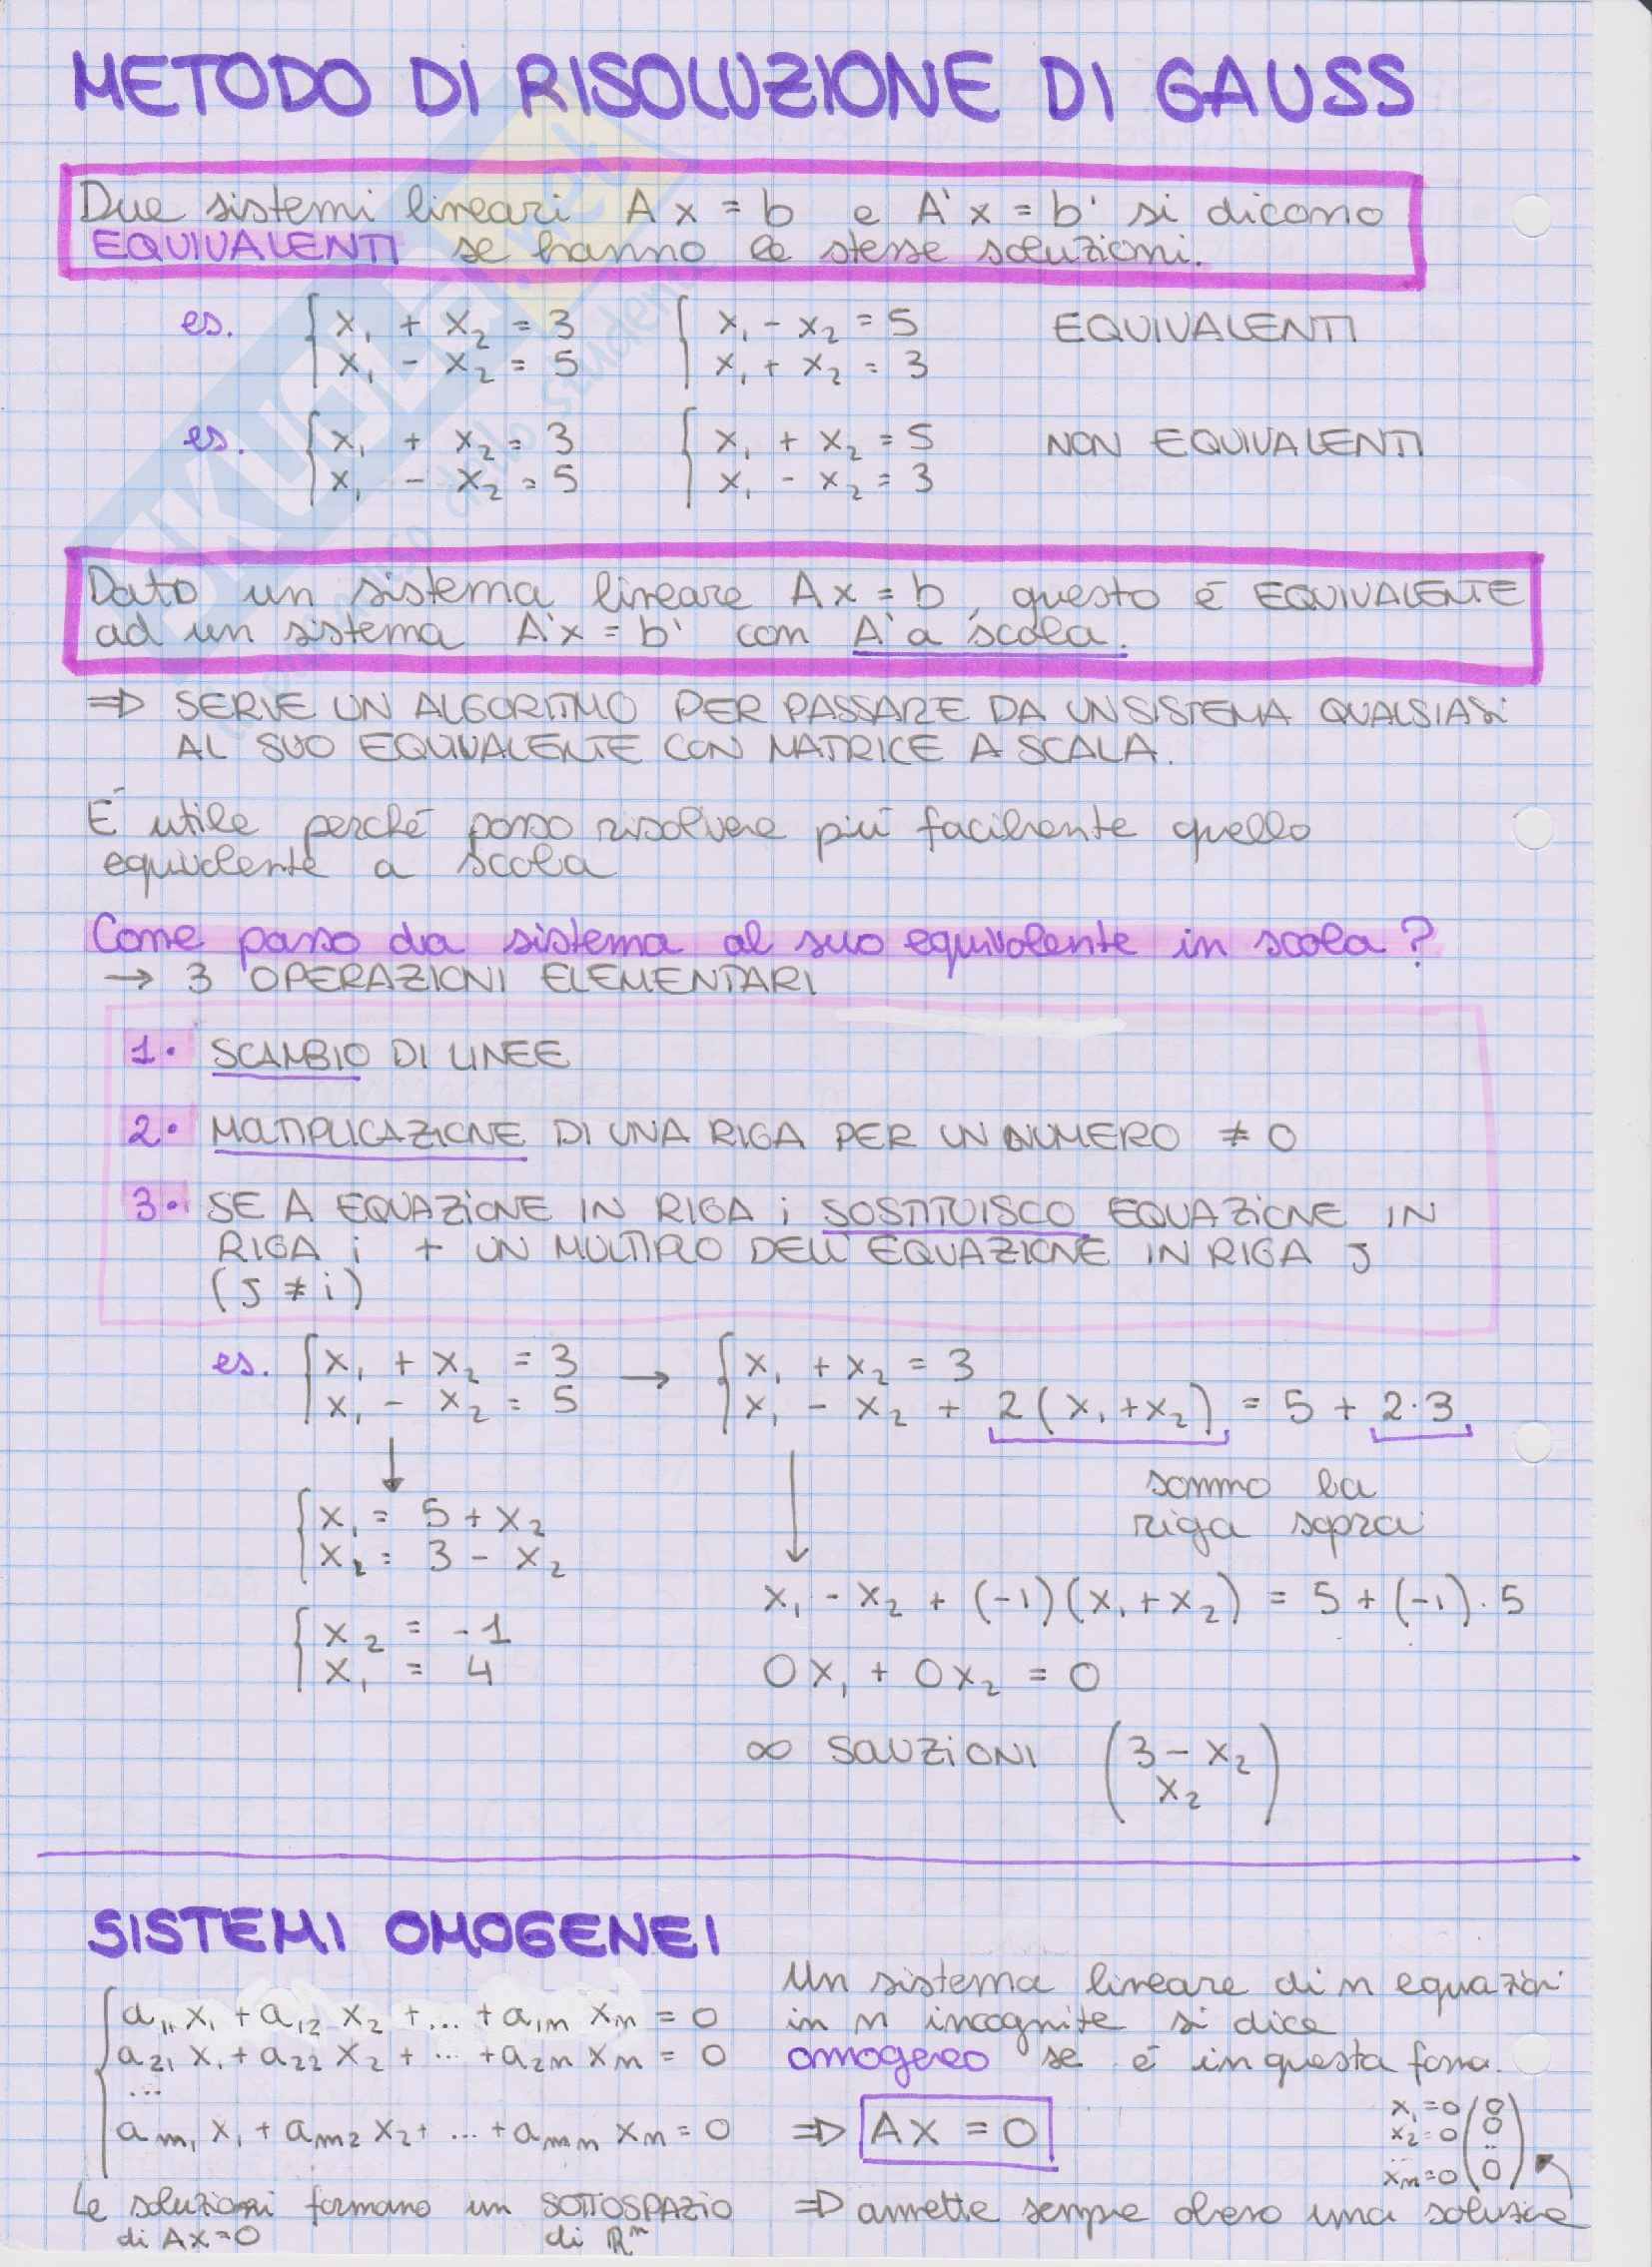 METODO DI RISOLUZIONE DI GAUSS
Due sistemi lineari Ax = b e A'x = b' si dicono
EQUIVALENTI se hanno le stesse soluzioni.
es. { x₁ + x₂ = 3 { x₁ - x₂ = 5 EQUIVALENTI
x₁ - x₂ = 5 x₁ + x₂ = 3
es. { x₁ + x₂ = 3 { x₁ + x₂ = 5 NON EQUIVALENTI
x₁ - x₂ = 5 x₁ - x₂ = 3
Dato un sistema lineare Ax = b, questo é EQUIVALENTE
ad un sistema A'x = b' con A' a scala.
⇒ SERVE UN ALGORITMO PER PASSARE DA UN SISTEMA QUALSIASI
AL SUO EQUIVALENTE CON MATRICE A SCALA.
É utile perché posso risolvere piú facilmente quello
equivalente a scala
Come passo da sistema al suo equivalente in scala?
→ 3 OPERAZIONI ELEMENTARI
1. SCAMBIO DI LINEE
2. MOLTIPLICAZIONE DI UNA RIGA PER UN NUMERO ≠ 0
3. SE A EQUAZIONE IN RIGA i SOSTITUISCO EQUAZIONE IN
RIGA i + UN MULTIPLO DELL'EQUAZIONE IN RIGA J
(J ≠ i)
es. { x₁ + x₂ = 3 → { x₁ + x₂ = 3
x₁ - x₂ = 5 x₁ - x₂ + 2(x₁+x₂) = 5 + 2·3
↓ sommo la
riga sopra
{ x₁ = 5 + x₂ ↓
x₂ = 3 - x₂
x₁ - x₂ + (-1)(x₁+x₂) = 5 + (-1)·5
{ x₂ = -1
x₁ = 4 0x₁ + 0x₂ = 0
∞ SOLUZIONI (3 - x₂
x₂)
SISTEMI OMOGENEI
Un sistema lineare di n equazioni
{ a₁₁x₁ + a₁₂x₂ + ... + a₁ₙxₙ = 0 in n incognite si dice
a₂₁x₁ + a₂₂x₂ + ... + a₂ₙxₙ = 0 omogeneo se é in questa forma.
...
aₘ₁x₁ + aₘ₂x₂ + ... + aₘₙxₙ = 0 ⇒ AX = 0
x₁=0 (0
x₂=0 0
... ..
xₙ=0 0)
Le soluzioni formano un SOTTOSPAZIO ⇒ ammette sempre almeno una soluzione
di AX=0 di Rⁿ